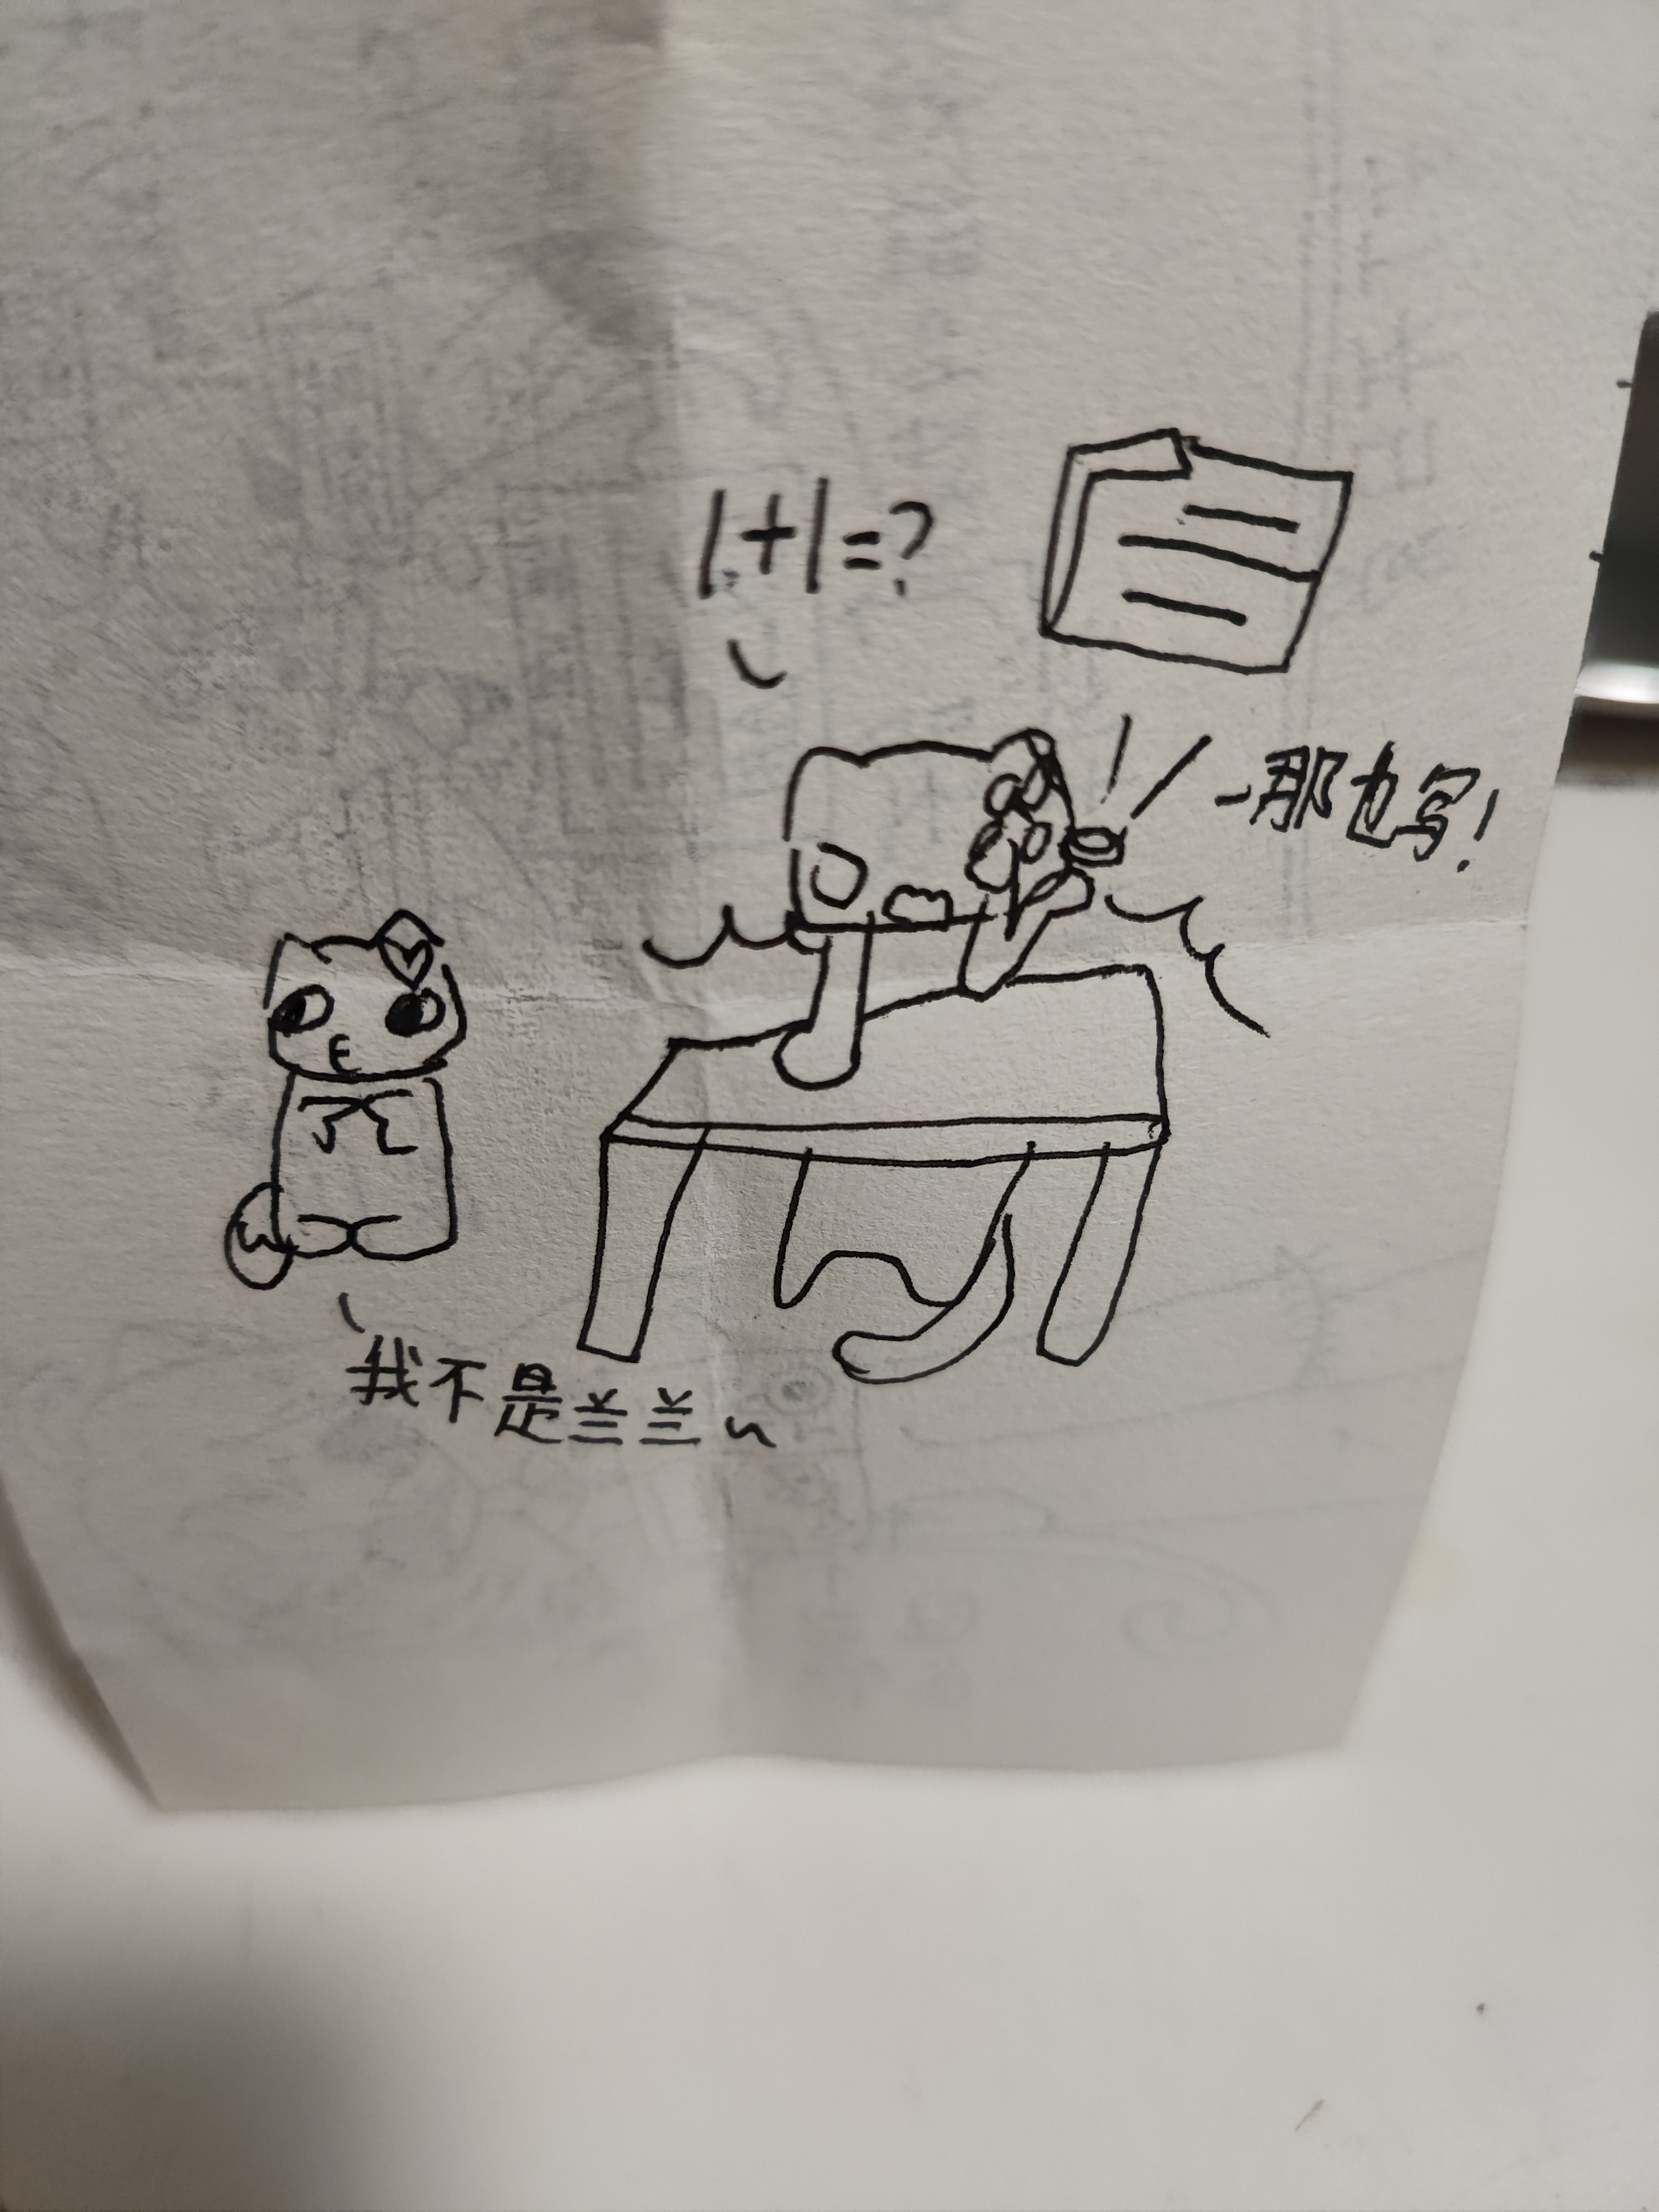 1+1=?
那也写!
我不是兰兰~